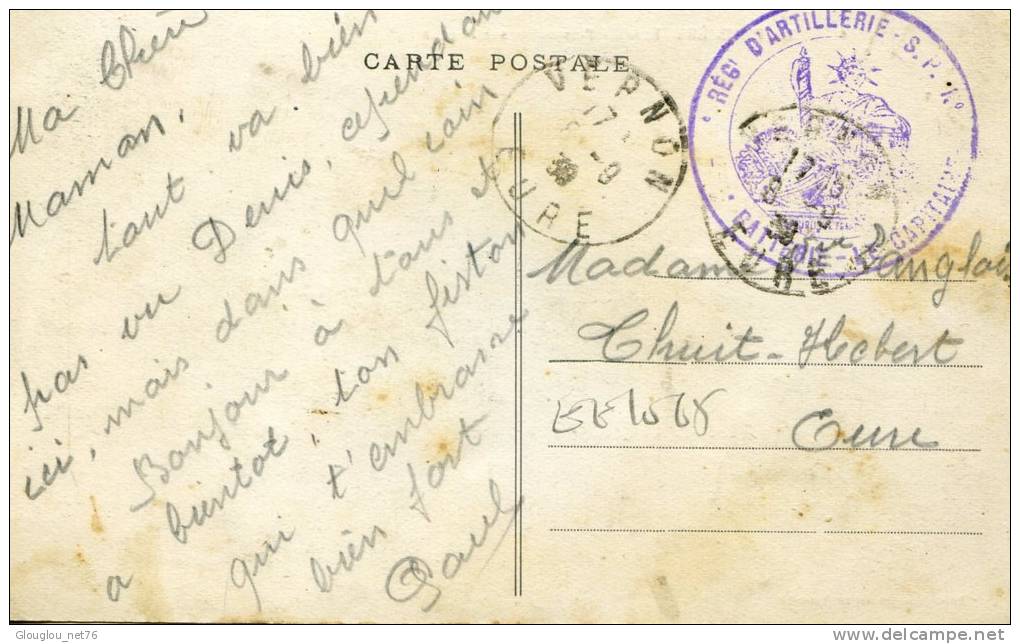 CARTE POSTALE
Ma Chère
Maman,
tout va bien
pas vu Denis, cependant
ici, mais dans quel coin
Bonjour à tous et
a bientot, ton fiston
qui t'embrasse
bien fort
Paul
VERNON
17
9
39
EURE
RÉGt D'ARTILLERIE - S.P. No
BATTERIE - LE CAPITAINE
Madame Langlois
Thuit-Hebert
Eure
Glouglou_net76
www.delcampe.net